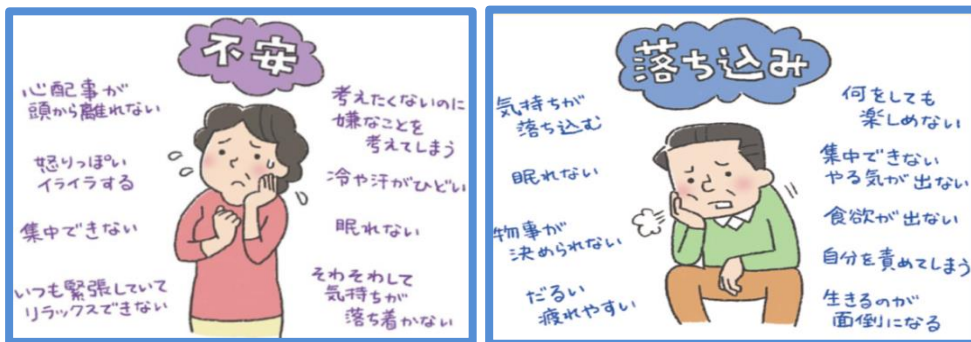 不安
心配事が
頭から離れない
怒りっぽい
イライラする
集中できない
いつも緊張していて
リラックスできない
考えたくないのに
嫌なことを
考えてしまう
冷や汗がひどい
眠れない
そわそわして
気持ちが
落ち着かない
落ち込み
気持ちが
落ち込む
眠れない
物事が
決められない
だるい
疲れやすい
何をしても
楽しめない
集中できない
やる気が出ない
食欲が出ない
自分を責めてしまう
生きるのが
面倒になる